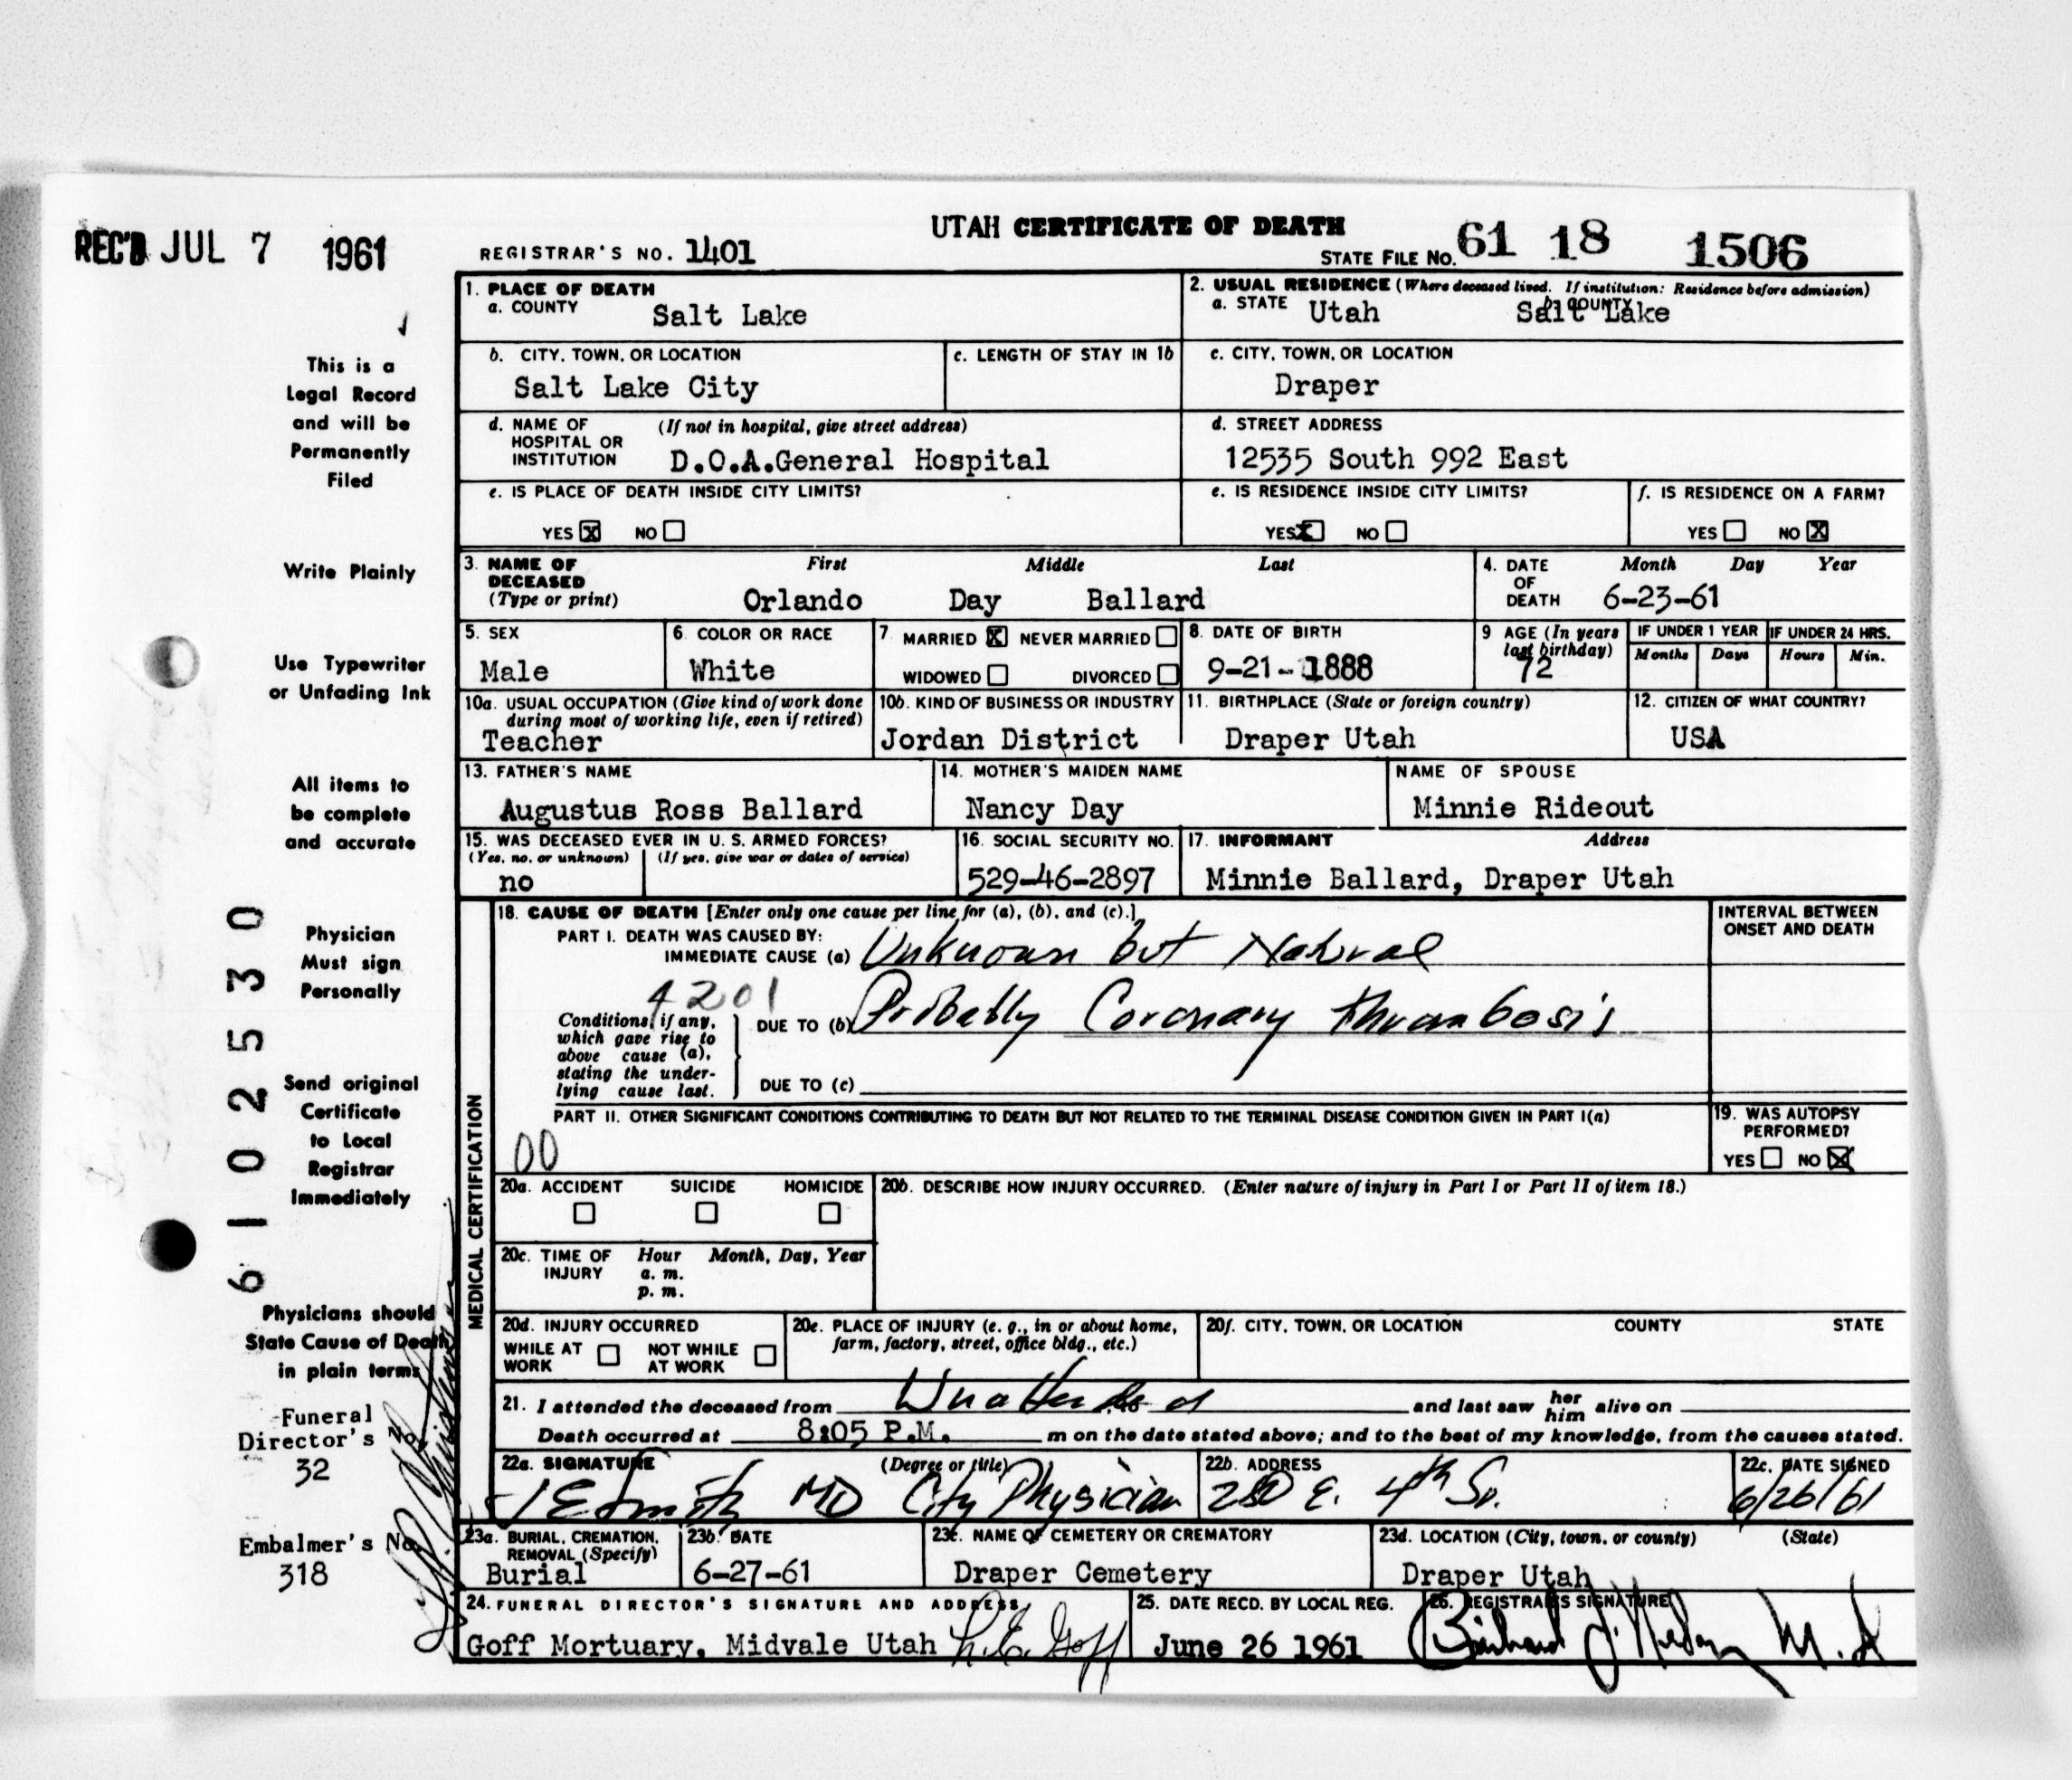 REC'D JUL 7 1961
UTAH CERTIFICATE OF DEATH
REGISTRAR'S NO. 1401
STATE FILE NO. 61 18 1506
This is a
Legal Record
and will be
Permanently
Filed
Write Plainly
Use Typewriter
or Unfading Ink
All items to
be complete
and accurate
Physician
Must sign
Personally
Send original
Certificate
to Local
Registrar
Immediately
Physicians should
State Cause of Death
in plain terms
Funeral
Director's No.
32
Embalmer's No.
318
6102530
1. PLACE OF DEATH
a. COUNTY Salt Lake
2. USUAL RESIDENCE (Where deceased lived. If institution: Residence before admission)
a. STATE Utah b. COUNTY Salt Lake
b. CITY, TOWN, OR LOCATION
Salt Lake City
c. LENGTH OF STAY IN 1b
c. CITY, TOWN, OR LOCATION
Draper
d. NAME OF (If not in hospital, give street address)
HOSPITAL OR
INSTITUTION D.O.A.General Hospital
d. STREET ADDRESS
12535 South 992 East
e. IS PLACE OF DEATH INSIDE CITY LIMITS?
YES X NO
e. IS RESIDENCE INSIDE CITY LIMITS?
YES X NO
f. IS RESIDENCE ON A FARM?
YES NO X
3. NAME OF First Middle Last
DECEASED
(Type or print) Orlando Day Ballard
4. DATE Month Day Year
OF
DEATH 6-23-61
5. SEX
Male
6. COLOR OR RACE
White
7. MARRIED X NEVER MARRIED
WIDOWED DIVORCED
8. DATE OF BIRTH
9-21-1888
9 AGE (In years
last birthday)
72
IF UNDER 1 YEAR
Months Days
IF UNDER 24 HRS.
Hours Min.
10a. USUAL OCCUPATION (Give kind of work done
during most of working life, even if retired)
Teacher
10b. KIND OF BUSINESS OR INDUSTRY
Jordan District
11. BIRTHPLACE (State or foreign country)
Draper Utah
12. CITIZEN OF WHAT COUNTRY?
USA
13. FATHER'S NAME
Augustus Ross Ballard
14. MOTHER'S MAIDEN NAME
Nancy Day
NAME OF SPOUSE
Minnie Rideout
15. WAS DECEASED EVER IN U. S. ARMED FORCES?
(Yes, no, or unknown) (If yes, give war or dates of service)
no
16. SOCIAL SECURITY NO.
529-46-2897
17. INFORMANT Address
Minnie Ballard, Draper Utah
MEDICAL CERTIFICATION
18. CAUSE OF DEATH [Enter only one cause per line for (a), (b), and (c).]
PART I. DEATH WAS CAUSED BY:
IMMEDIATE CAUSE (a) Unknown but Natural
4201
Conditions, if any,
which gave rise to
above cause (a),
stating the under-
lying cause last.
DUE TO (b) Probably Coronary thrombosis
DUE TO (c)
INTERVAL BETWEEN
ONSET AND DEATH
PART II. OTHER SIGNIFICANT CONDITIONS CONTRIBUTING TO DEATH BUT NOT RELATED TO THE TERMINAL DISEASE CONDITION GIVEN IN PART I(a)
00
19. WAS AUTOPSY
PERFORMED?
YES NO X
20a. ACCIDENT SUICIDE HOMICIDE
20b. DESCRIBE HOW INJURY OCCURRED. (Enter nature of injury in Part I or Part II of item 18.)
20c. TIME OF Hour Month, Day, Year
INJURY a. m.
p. m.
20d. INJURY OCCURRED
WHILE AT NOT WHILE
WORK AT WORK
20e. PLACE OF INJURY (e. g., in or about home,
farm, factory, street, office bldg., etc.)
20f. CITY, TOWN, OR LOCATION COUNTY STATE
21. I attended the deceased from Unattended and last saw her him alive on
Death occurred at 8:05 P.M. m on the date stated above; and to the best of my knowledge, from the causes stated.
22a. SIGNATURE (Degree or title)
MD City Physician
22b. ADDRESS
E. 4th So.
22c. DATE SIGNED
6/26/61
23a. BURIAL, CREMATION,
REMOVAL (Specify)
Burial
23b. DATE
6-27-61
23c. NAME OF CEMETERY OR CREMATORY
Draper Cemetery
23d. LOCATION (City, town, or county) (State)
Draper Utah
24. FUNERAL DIRECTOR'S SIGNATURE AND ADDRESS
Goff Mortuary, Midvale Utah R.E. Goff
25. DATE RECD. BY LOCAL REG.
June 26 1961
26. REGISTRAR'S SIGNATURE
M.D